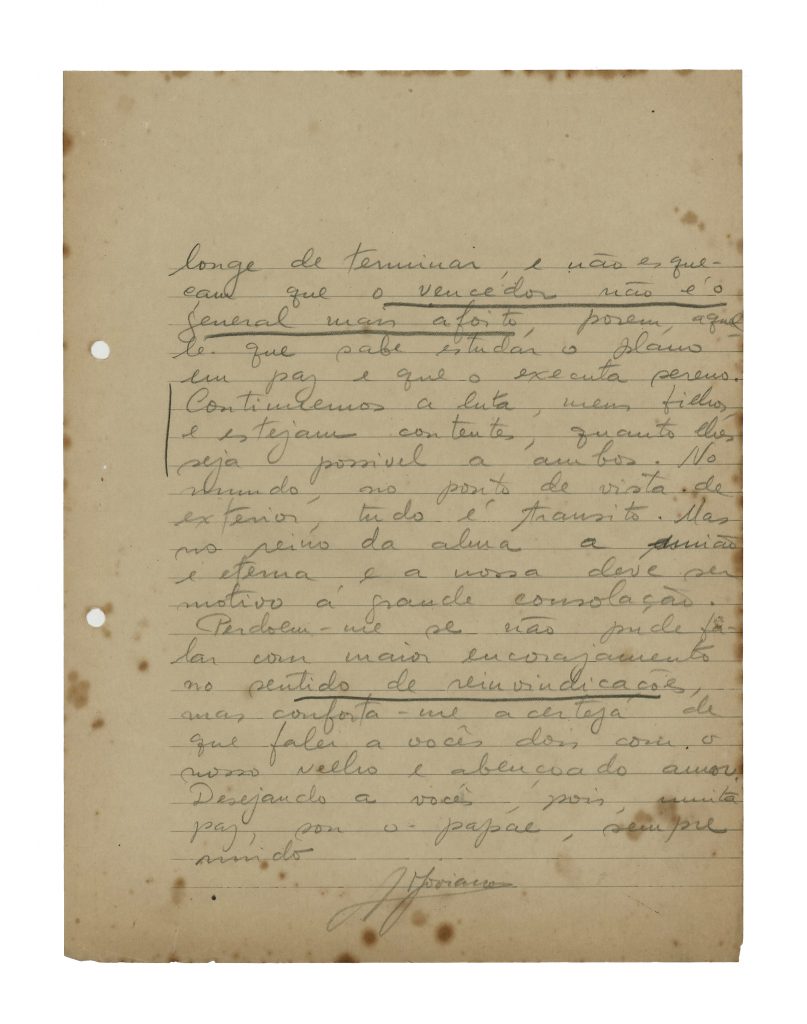 longe de terminar, e não esque-
çam que o vencedor não é o
general mais afoito, porem, aquel
le que sabe estudar o plano
em paz e que o executa sereno.
Continuemos a luta, meus filhos,
e estejam contentes, quanto lhes
seja possivel a ambos. No
mundo, no ponto de vista de
exterior, tudo é transito. Mas
no reino da alma a união
é eterna e a nossa deve ser
motivo á grande consolação.
Perdoem-me se não pude fa-
lar com maior encorajamento
no sentido de reinvindicações,
mas conforta-me a certeza de
que falei a vocês dois com o
nosso velho e abençoado amor.
Desejando a vocês, pois, muita
paz, sou o papae, sempre
unido